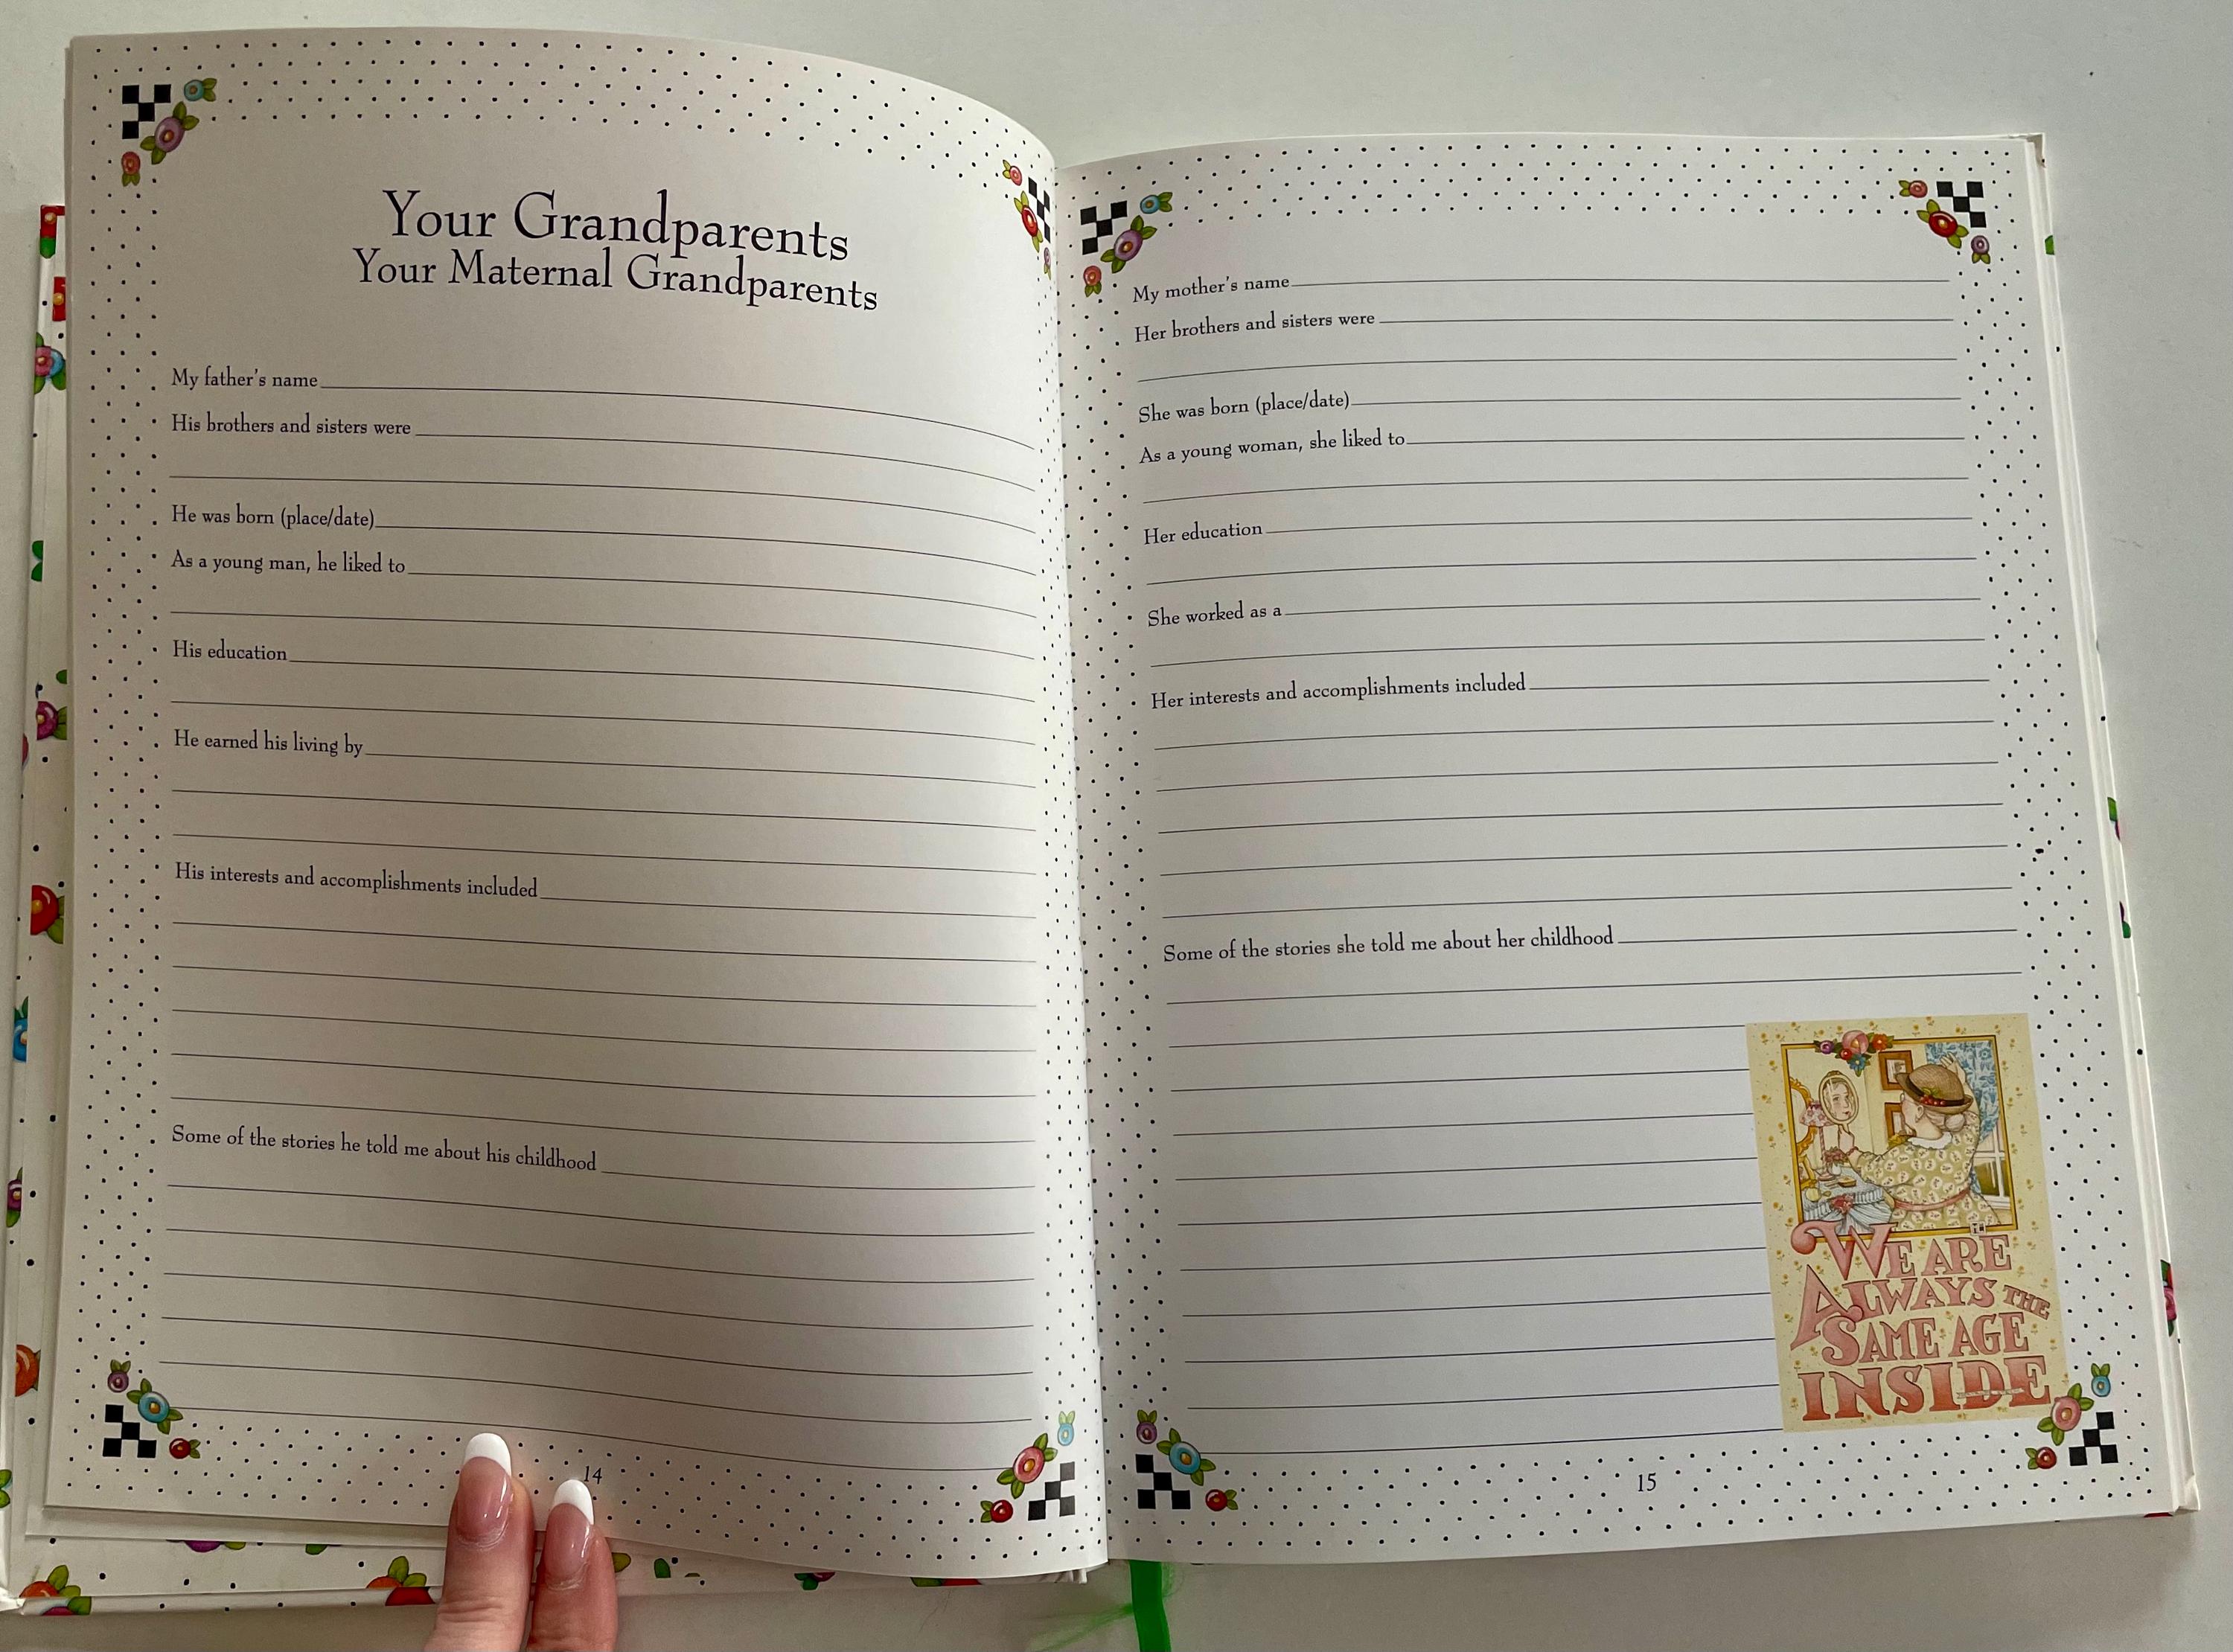 Your Grandparents
Your Maternal Grandparents
My father's name
His brothers and sisters were
He was born (place/date)
As a young man, he liked to
His education
He earned his living by
His interests and accomplishments included
Some of the stories he told me about his childhood
14
My mother's name
Her brothers and sisters were
She was born (place/date)
As a young woman, she liked to
Her education
She worked as a
Her interests and accomplishments included
Some of the stories she told me about her childhood
WE ARE
ALWAYS THE
SAME AGE
INSIDE
15